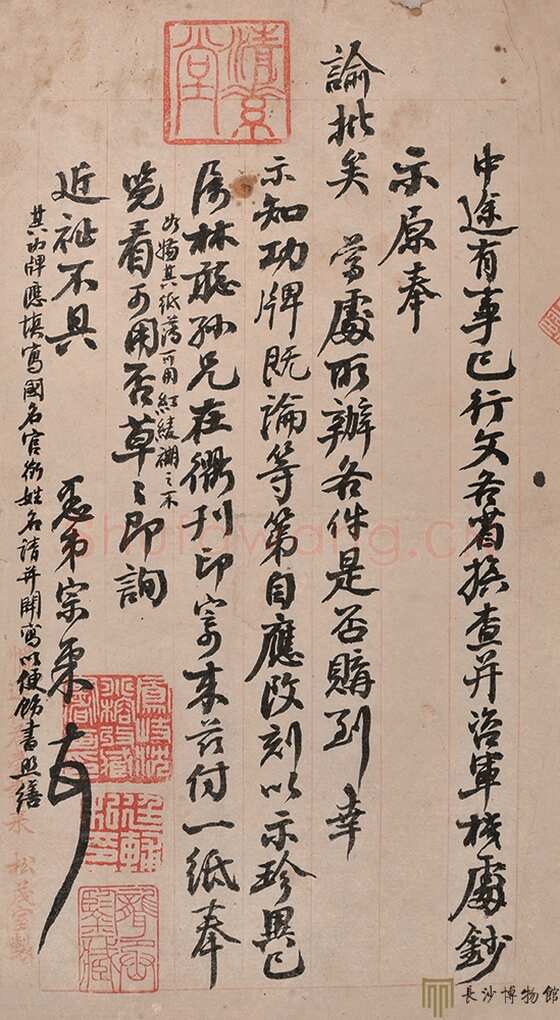 中途有事已行文各省摈查并咨军機處鈔
示原奉
諭批矣 尊處所辦各件是否購到 幸
示知功牌既論等第自應改刻以示珍異已
屬林聽孫兄在衢刊印寄来兹付一紙奉
覽看可用否草々即詢
如嫌其紙薄可用紅綾裱之
近祉不具 愚弟宗
其功牌應填寫國名官銜姓名請并開寫以便飭書照繕
松茂室製
長沙博物館